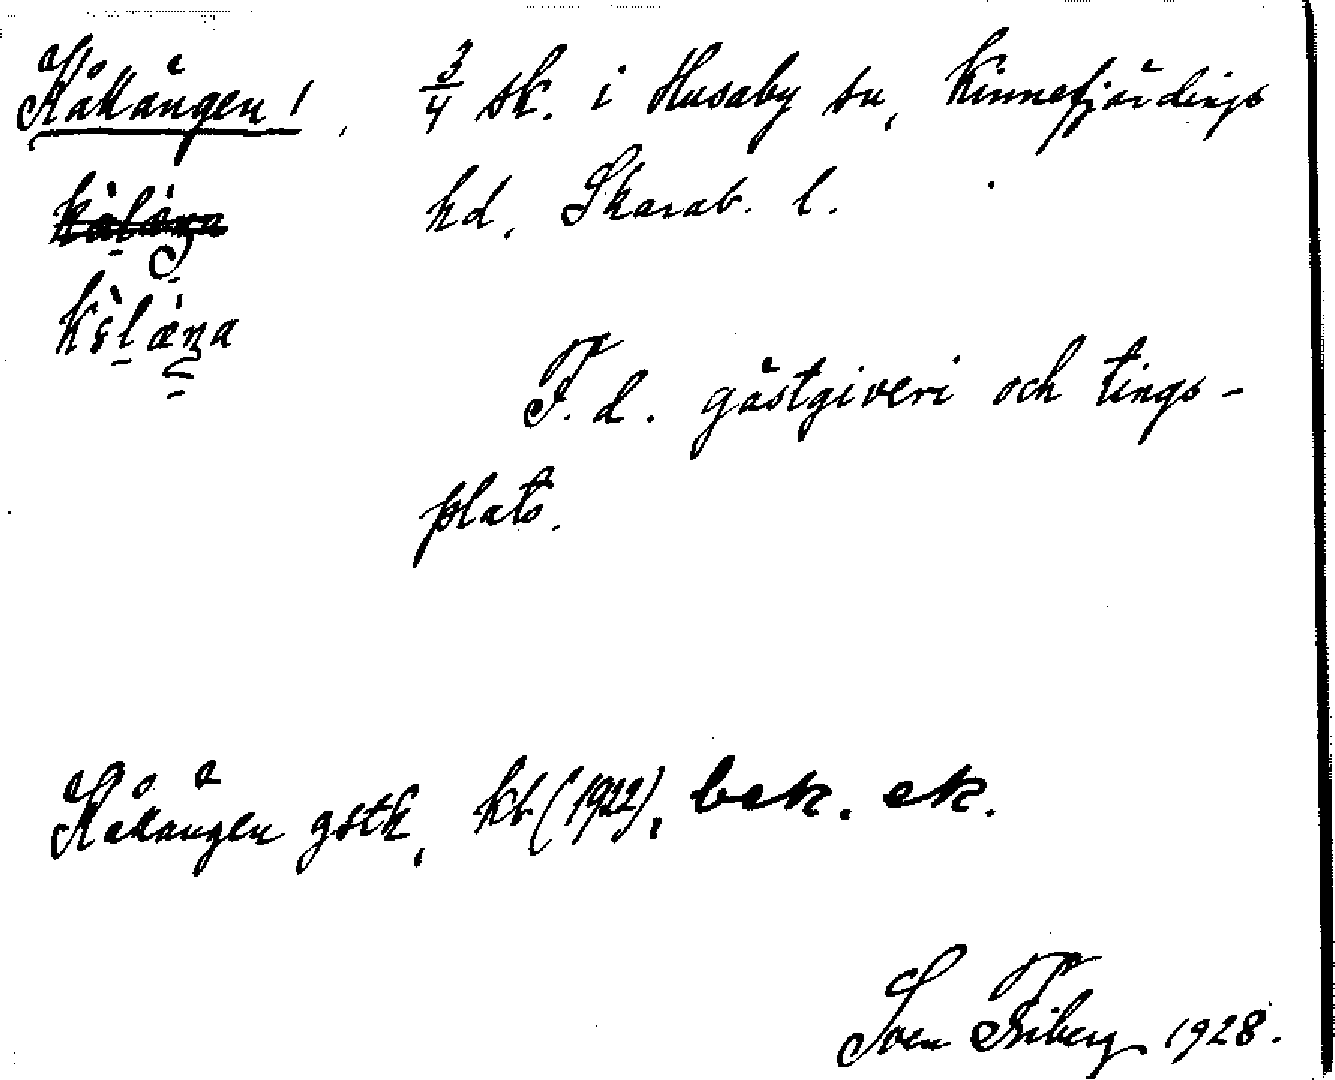 Kållängen 1, 3/4 sk. i Husaby sn, Kinnefjärdings
hd, Skarab. l.
F. d. gästgiveri och tings-
plats.
Kållängen gstk, kb (1922), bek. ek.
Sven Friberg 1928.